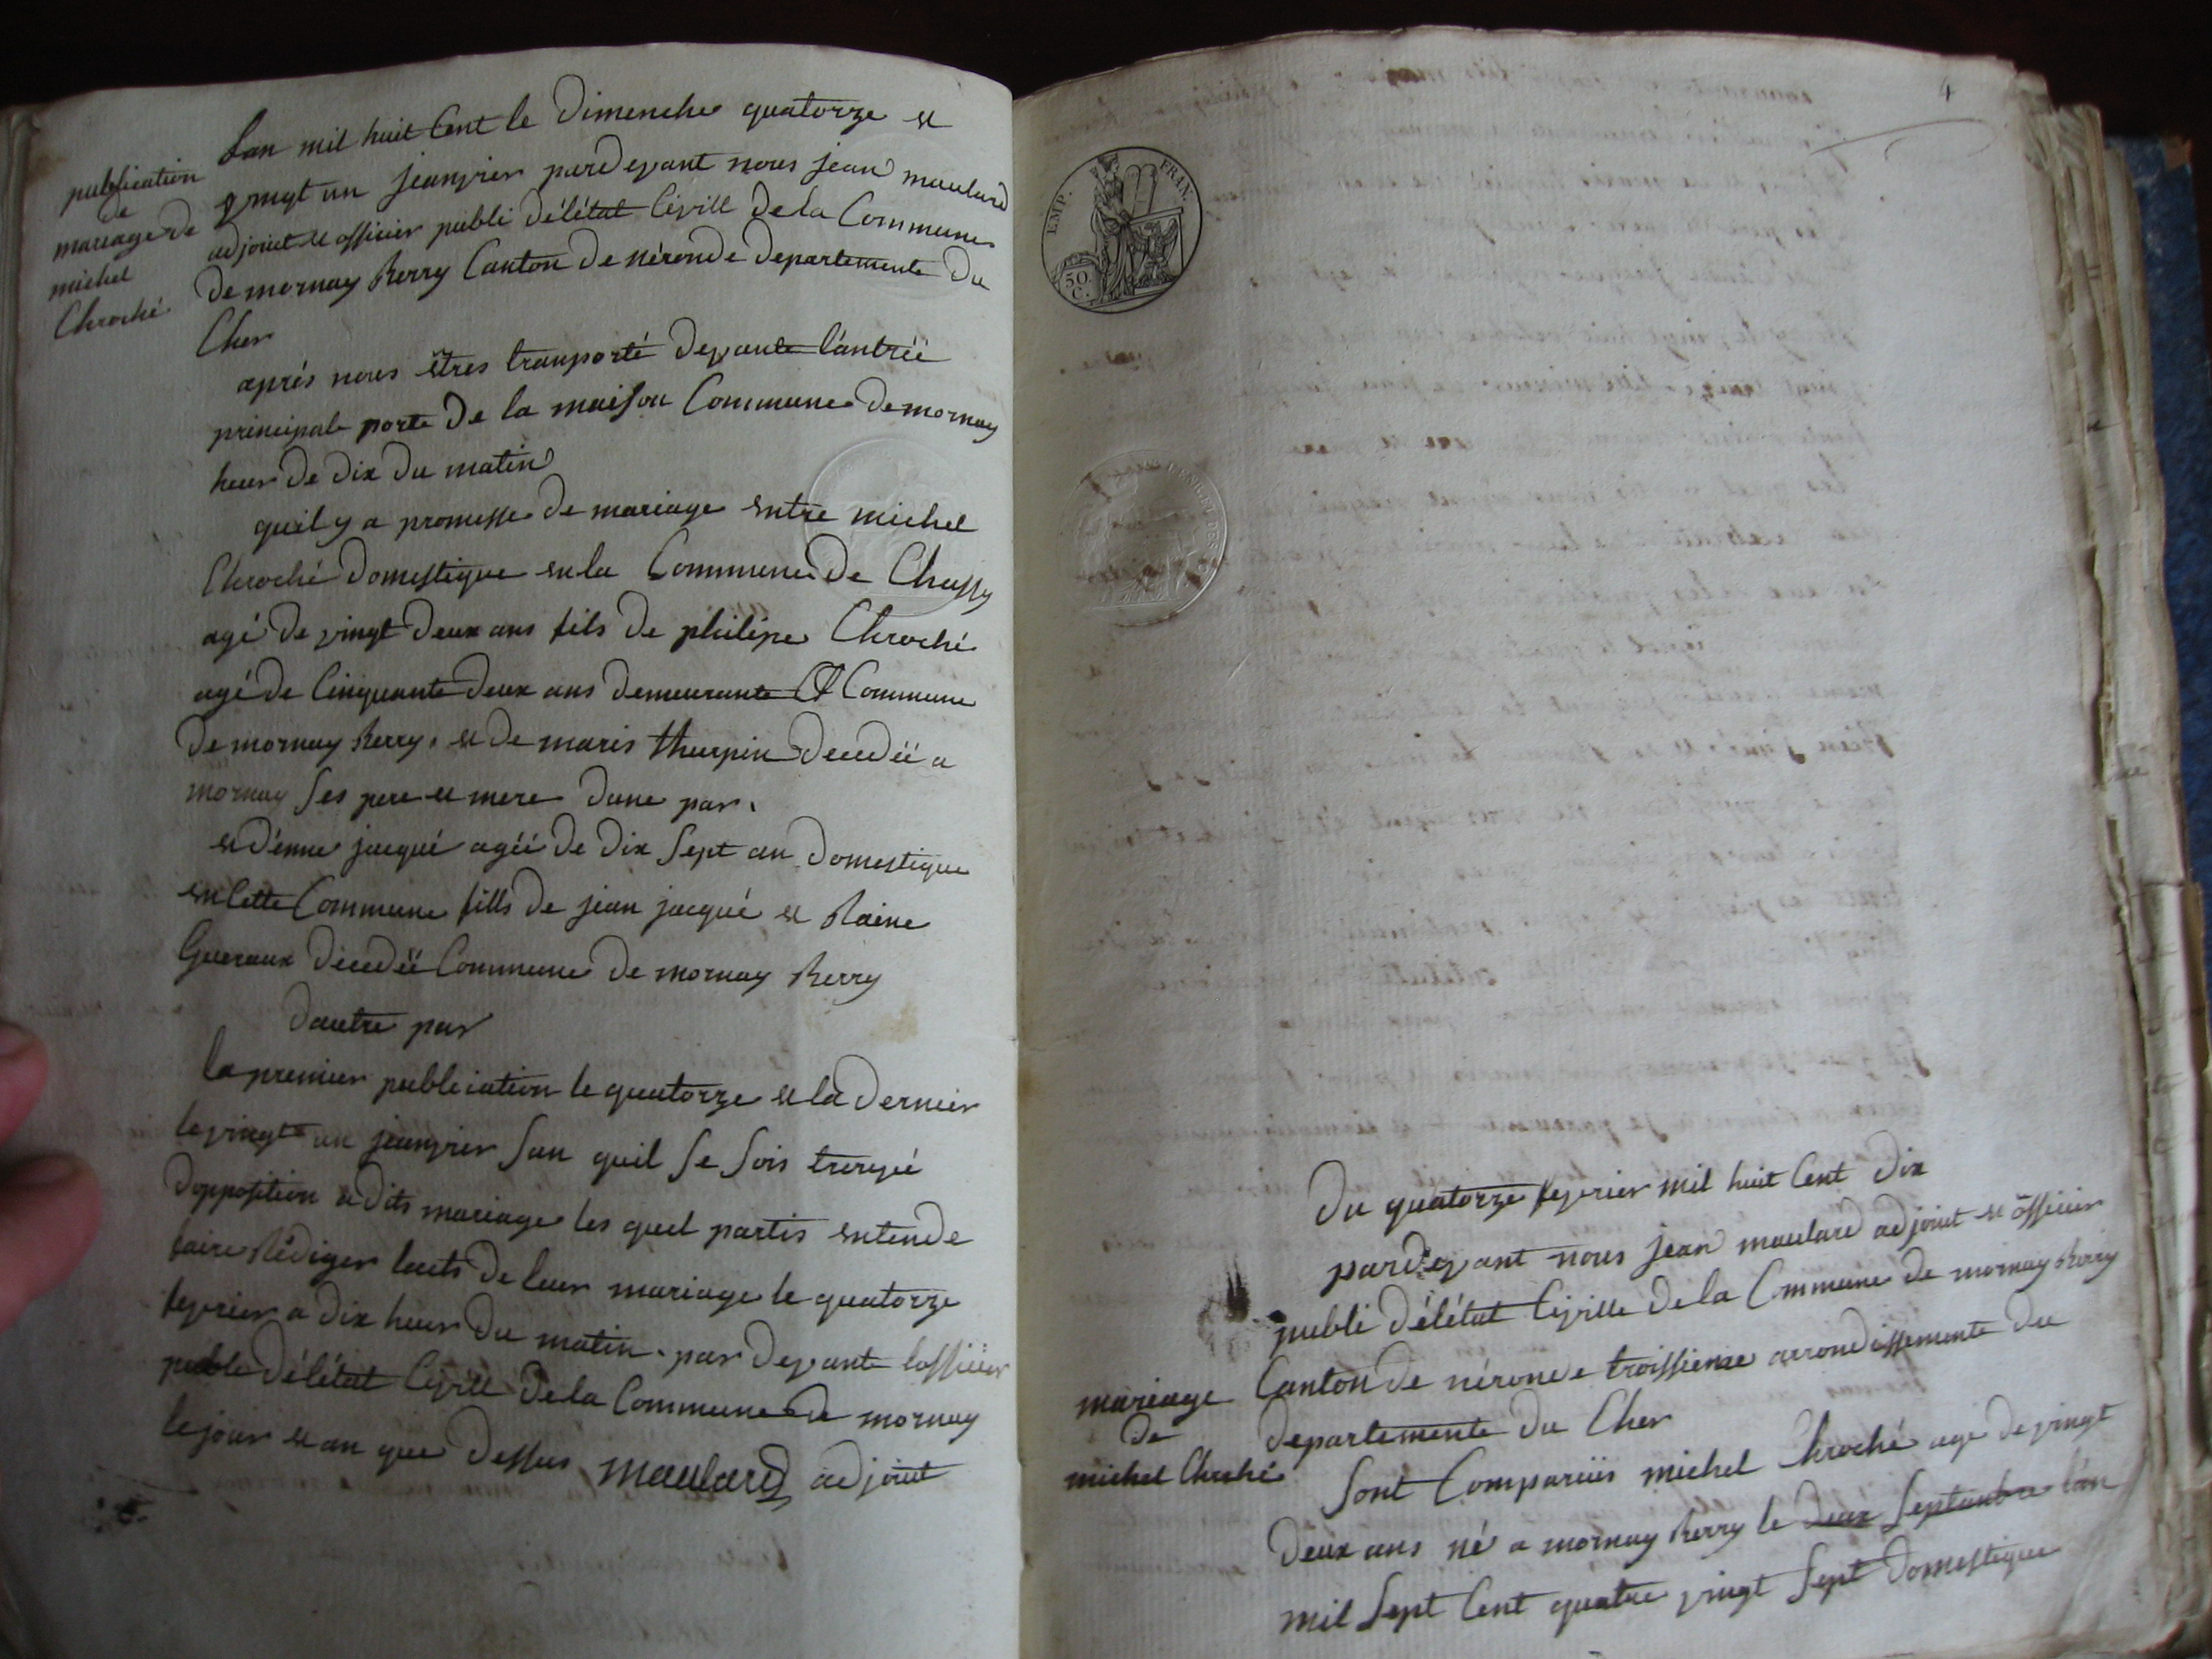 publication
de
mariage de
michel
Chroché
Lan mil huit Cent le Dimenche quatorze et
vingt un jeanvier pardevant nous jean maulard
adjoint et officier publi délétat Civill de la Commune
de mornay Berry Canton de néronde departemente du
Cher
aprés nous étres transporté devante lántréé
principale porte de la maison Commune de mornay
heur de dix du matin
quil y a promesse de mariage entre michel
Chroché domestique en la Commune de Chassy
agé de vingt deux ans fils de philipe Chroché
agé de Cinquante deux ans demeurante Commune
de mornay Berry. et de maris thurpin decedéé a
mornay ses pere et mere dune par.
et dénne jacqué agéé de dix sept an domestique
en Cette Commune fills de jean jacqué et Raine
Gueraux décedéé Commune de mornay Berry
dautre par
la premier publiciation le quatorze et la dernier
le vingt un jeanvier san quil se sois trouvé
dopposition a dits mariage les quel partis entende
faire Rédiger lacts de leur mariage le quatorze
fevrier a dix heur du matin. par devante lofficier
publi délétat Civill de la Commune de mornay
le jour et an que dessus maulard adjoint
4
EMP. FRAN.
50
C.
du quatorze fevrier mil huit Cent dix
pardevant nous jean maulard adjoint et officier
publi délétat Civille de la Commune de mornay Berry
Canton de néronde troissieme arrondissemente du
departemente du Cher
mariage
de
michel Chroché
sont Comparüs michel Chroché agé de vingt
deux ans né a mornay Berry le deux septanbre lán
mil sept Cent quatre vingt sept domestique